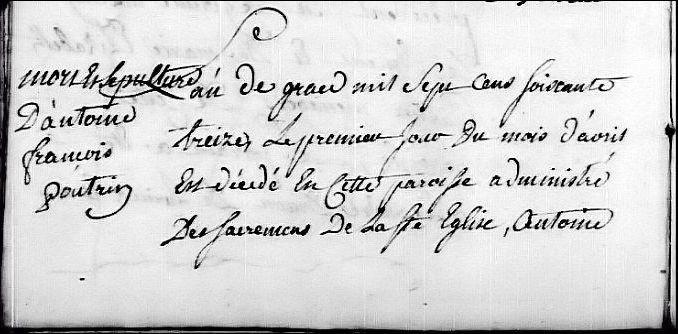 mort Et sepulture
D'antoine
francois
poutrin
L'an de grace mil sept cens soixante
treize, Le premier jour Du mois d'avril
Est décédé En Cette paroisse administré
Des sacremens De La ste Eglise, Antoine